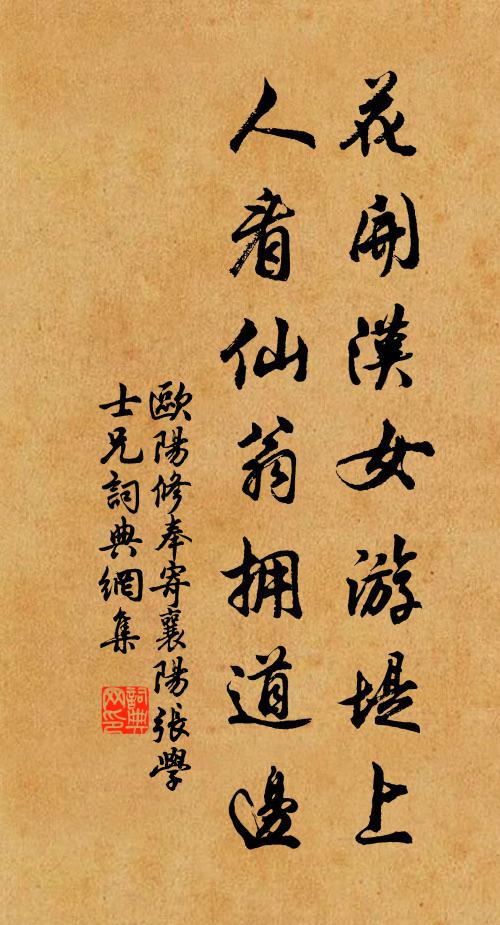 花開漢女游堤上
人看仙翁拥道邊
歐陽修奉寄襄陽張學
士兄詞典網集
詞典
网印